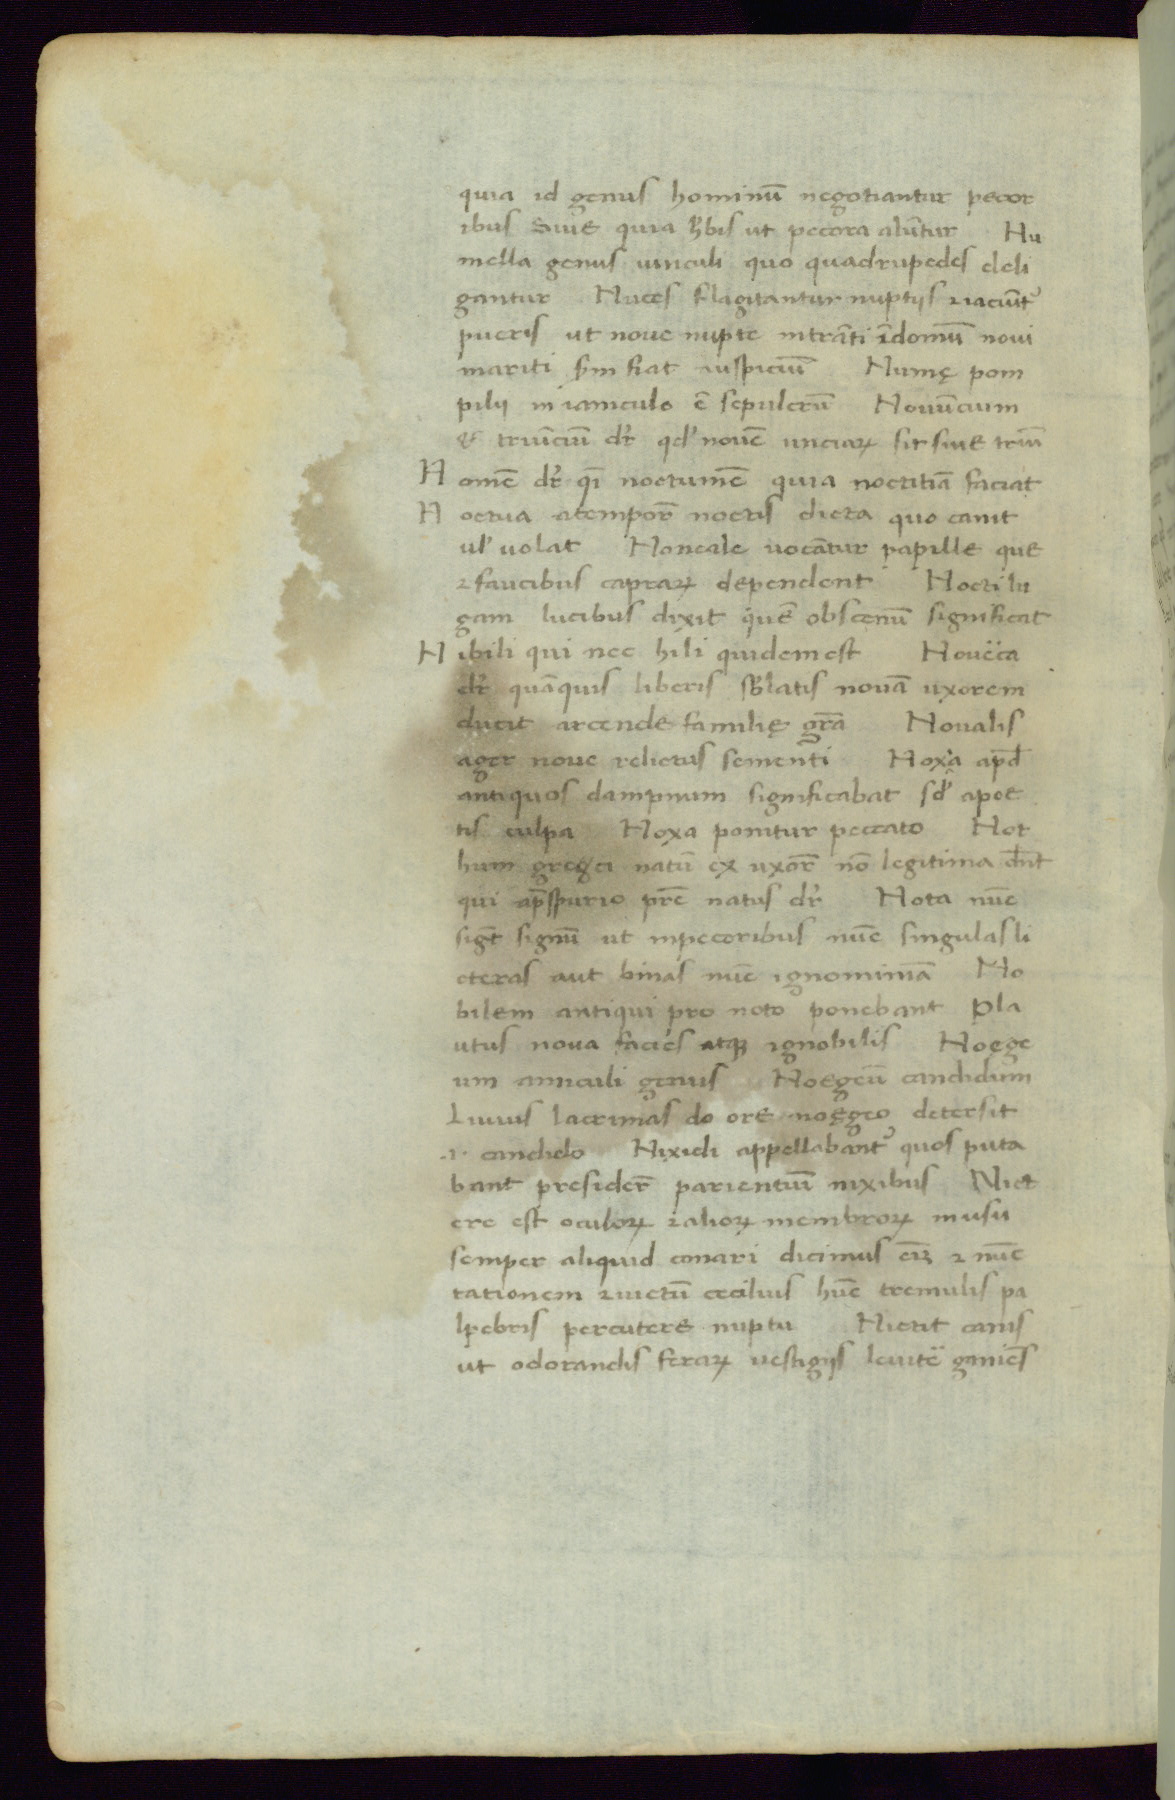 quia id genus hominū negotiantur pecor
ibus Siue quia hr̄bis ut pecora alūtur Nu
mella genus uinculi quo quadrupedes deli
gantur Nuces flagitantur nuptijs ⁊iaciūtꝰ
pueris ut noue nupte intrāti īdomū noui
mariti sc̄m fiat auspiciū Numę pom
pilij in ianiculo ē sepulcrū Nouūcium
& truīciū dr̄ qđ nouē unciaꝝ sit siue triū
Nomē dr̄ qͣi noctumē quia noctitiā faciat
Noctua atempor̄ noctis dicta quo canit
ul̓ uolat Noneale uocātur papille que
⁊faucibus capraꝝ dependent Noctilu
gam lucibus dixit quē obscenū significat
Nibili qui nec hili quidemest Nouēca
dr̄ quāquis liberis sb̄latis nouā uxorem
ducit arcende familię grā Noualis
ager noue relictus sementi Noxa apđ
antiquos dampnum significabat sđ apoe
tis culpa Noxa ponitur peccato Not
hum greci natū ex uxor̄ nō legitima
qui apđspurio pr̄e natus dr̄ Nota nūc
sigt̄ signū ut inpecoribus nūc singulas li
cteras aut binas nūc ignominiā No
bilem antiqui pro noto ponebant Pla
utus noua facies atqꝫ ignobilis Noęge
um amiculi genus Noegeū candidum
Liuius lacrimas do ore noęgeo detersit
.i. candido Nixidi appellabantꝰ quos puta
bant presider̄ parientiū nixibus Nict
ere est oculoꝝ ⁊alioꝝ membroꝝ inusu
semper aliquid conari dicimus eīꝫ ⁊ nūc
tationem ⁊uictū cecilius hūc tremulis pa
lpebris percutere nuptu Nictit canis
ut odorandis feraꝝ uestigijs leuitē ganiēs